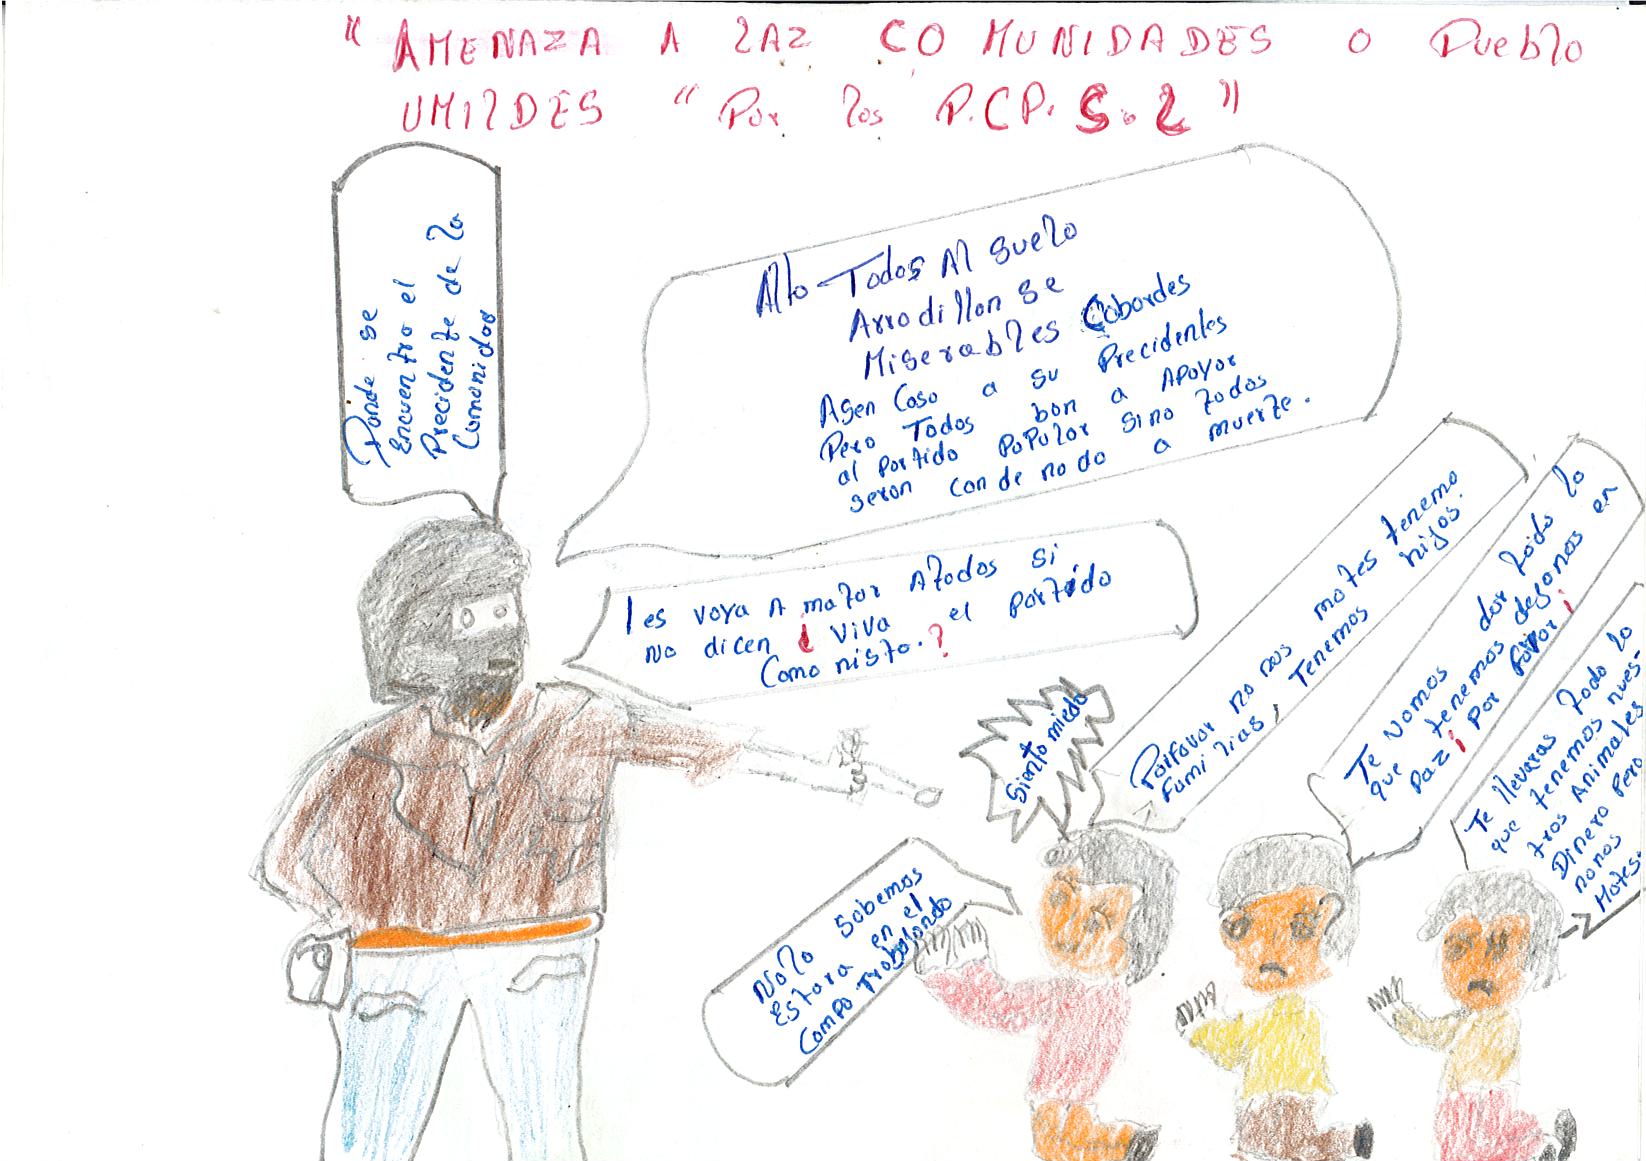 “AMENAZA A LAZ COMUNIDADES O Pueblo
UMILDES “Por los P.C.P. S.L”
Donde se
Encuentra el
Precidente de la
Comonidad
Alto Todos Al suelo
Arrodillan se
Miserables Cobardes
Asen Caso a su Precidentes
Pero Todos ban a APoyar
al Partido PoPular sino todos
seran condenado a muerte.
les voya A matar Atodos si
no dicen ¿ Viva el Partido
Comonista.?
siento miedo
Porfavor no nos mates tenemo
Familias, Tenemos hijos.
Te vamos dar todo lo
que tenemos dejanos en
Paz ¡ Por favor ¡
Te llevaras todo lo
que tenemos nues-
tros Animales
Dinero Pero
nonos
Mates.
Nolo sabemos
Estara en el
Campo trabajando